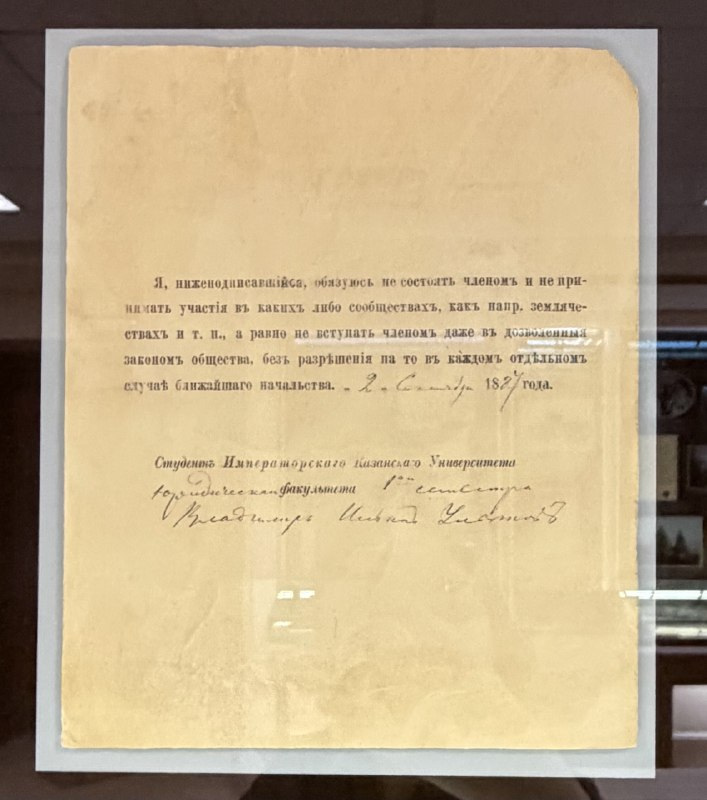 Я, нижеподписавшійся, обязуюсь не состоять членомъ и не при-
нимать участія въ какихъ либо сообществахъ, какъ напр. земляче-
ствахъ и т. п., а равно не вступать членомъ даже въ дозволенныя
закономъ общества, безъ разрѣшенія на то въ каждомъ отдѣльномъ
случаѣ ближайшаго начальства. „ 2 „ Сентября 1887 года.
Студентъ Императорскаго Казанскаго Университета
юридическаго факультета 1го семестра
Владимиръ Ильинъ Ульяновъ